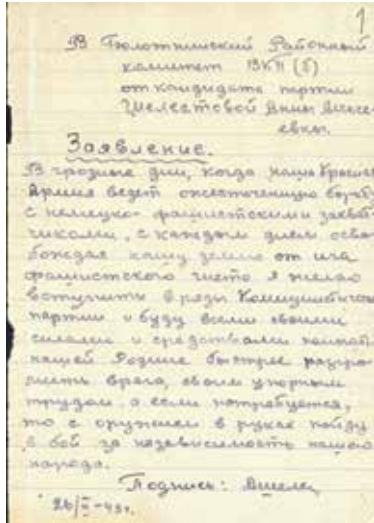 1
В Болотнинский Районный
комитет ВКП(б)
от кандидата партии
Шелестовой Анны Алексе-
евны.
Заявление.
В грозные дни, когда наша Красная
Армия ведет ожесточенную борьбу
с немецко-фашистскими захват-
чиками, с каждым днем осво-
бождая нашу землю от ига
фашистского я желаю
вступить в ряды Коммунистической
партии и буду всеми своими
силами и средствами помогать
нашей Родине быстрее разгро-
мить врага, своим упорным
трудом, а если потребуется,
то с оружием в руках пойду
в бой за независимость нашего
народа.
Подпись:
26/ -43г.